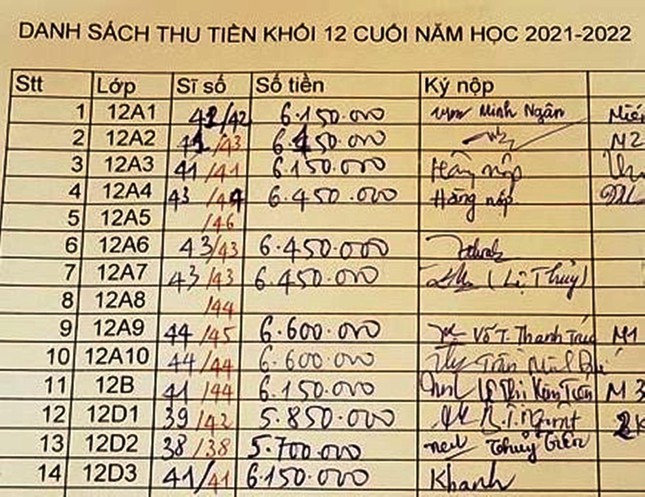 DANH SÁCH THU TIỀN KHỐI 12 CUỐI NĂM HỌC 2021-2022
Stt Lớp Sĩ số Số tiền Ký nộp
1 12A1 41/42 6.150.000 Minh Ngân
2 12A2 41/43 6.150.000 M2
3 12A3 41/41 6.150.000 nộp
4 12A4 43/44 6.450.000 Hằng nộp
5 12A5 /46
6 12A6 43/43 6.450.000
7 12A7 43/43 6.450.000 (Lệ Thủy)
8 12A8 /44
9 12A9 44/45 6.600.000 Võ T. Thanh M1
10 12A10 44/44 6.600.000 Trần
11 12B 41/44 6.150.000 Kim M3
12 12D1 39/42 5.850.000
13 12D2 38/38 5.700.000 Thủy
14 12D3 41/41 6.150.000 Khanh